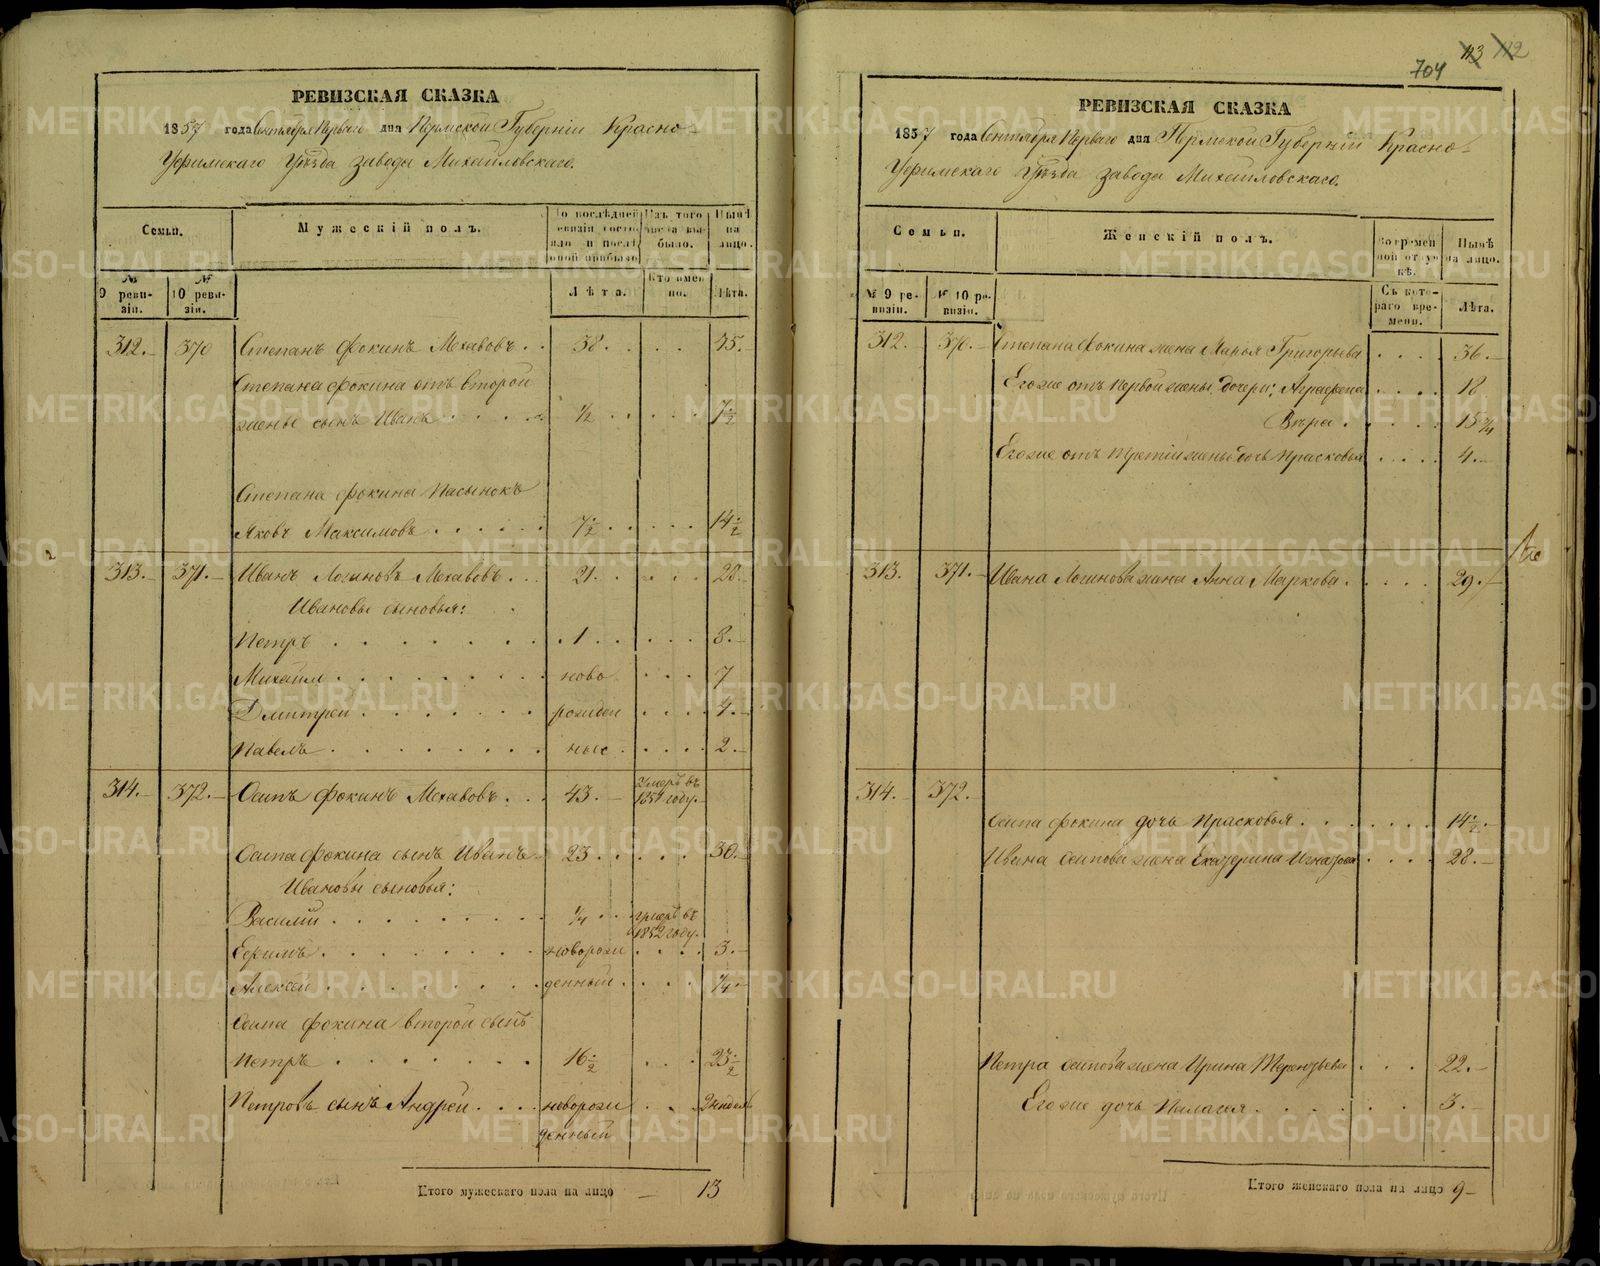 704 113 112
РЕВИЗСКАЯ СКАЗКА
1857 года Сентября Перваго дня Пермской Губерніи Красно-
Уфимскаго Уѣзда завода Михайловскаго.
Семьи.
Мужескій полъ.
По послѣдней ревизіи состояло и послѣ оной прибыло
Изъ того числа выбыло.
Нынѣ на лицо.
№ 9 ревизіи.
№ 10 ревизіи.
Лѣта.
Кто именно.
Лѣта.
312. 370 Степанъ Фокинъ Мехавовъ 38. 45.
Степана Фокина отъ второй
жены сынъ Иванъ 1/2 7 1/2
Степана Фокина Пасынокъ
Яковъ Максимовъ 7 1/2 14 1/2
313. 371. Иванъ Логиновъ Мехавовъ 21. 28.
Ивановы сыновья:
Петръ 1 8.
Михаилъ ново 7
Дмитрей рожден 4.
Павелъ ные 2.
314. 372. Осипъ Фокинъ Мехавовъ 43. Умеръ въ 1851 году.
Осипа Фокина сынъ Иванъ 23 30.
Ивановы сыновья:
Василій 1/4 умеръ въ 1852 году.
Ефимъ новорож 3.
Алексей денный 1/4
Осипа Фокина второй сынъ
Петръ 16 1/2 23 1/2
Петровъ сынъ Андрей новорож 2 недель
денный
Итого мужескаго пола на лицо — 13
РЕВИЗСКАЯ СКАЗКА
1857 года Сентября Перваго дня Пермской Губерніи Красно-
Уфимскаго Уѣзда завода Михайловскаго.
Семьи.
Женскій полъ.
Во временной отлучкѣ.
Нынѣ на лицо.
№ 9 ревизіи.
№ 10 ревизіи.
Съ котораго времени.
Лѣта.
312. 370. Степана Фокина жена Марья Григорьева 36.
Егоже отъ первой жены дочери: Аграфена 18
Вѣра 15 3/4
Егоже отъ третій жены дочь Прасковья 4.
313. 371. Ивана Логинова жена Анна Маркова 29.
314. 372.
Осипа Фокина дочь Прасковья 14 1/2.
Ивана Осипова жена Екатерина Игнатьева 28.
Петра Осипова жена Ирина Терентьева 22.
Егоже дочь Палагея 3.
Итого женскаго пола на лицо 9
METRIKI.GASO-URAL.RU